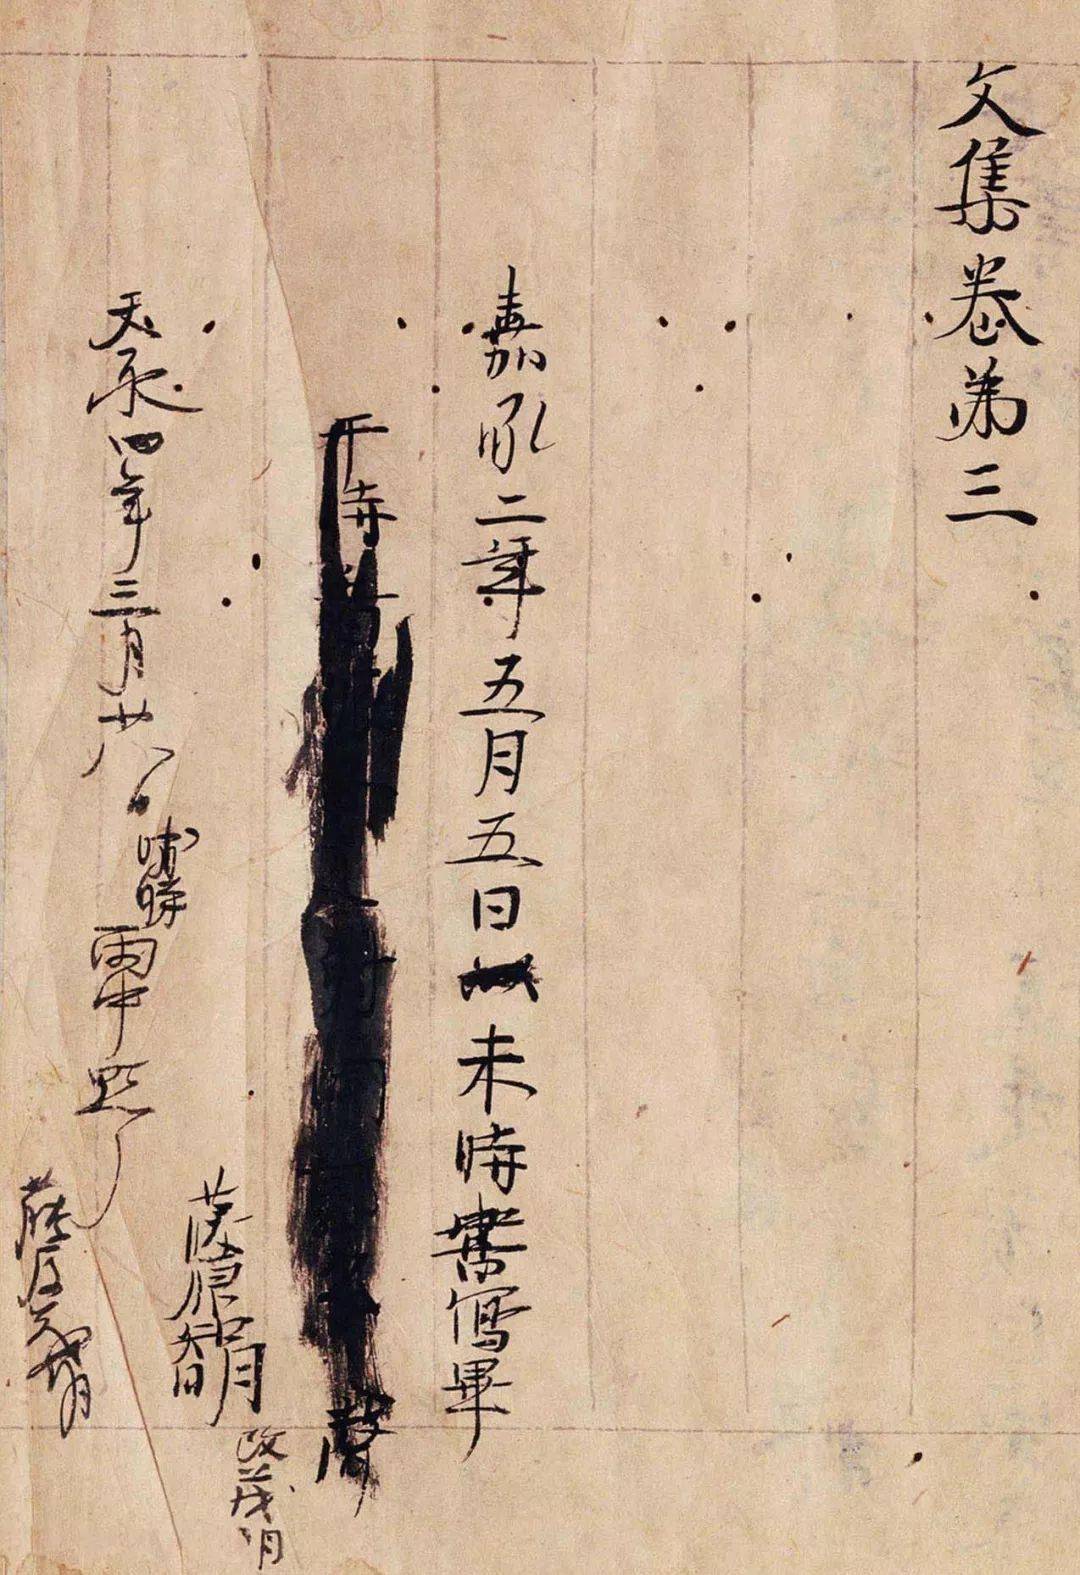 文集卷第三
嘉承二年五月五日未時書寫畢
于時
藤原知明
改茂明
天永四年三月廿八日
晡時
雨中點了
藤原茂明